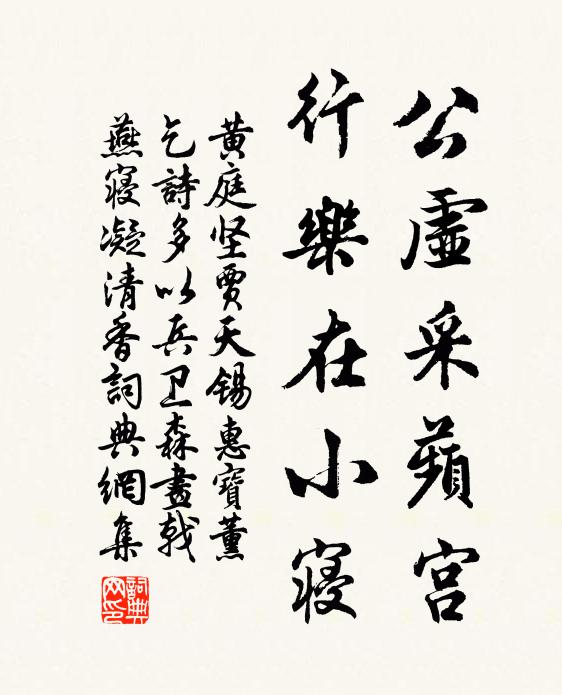 公虛采蘋宮
行樂在小寢
黄庭坚賈天锡惠寶薰
乞詩多以兵卫森畫戟
燕寢凝清香詞典網集
詞典网印